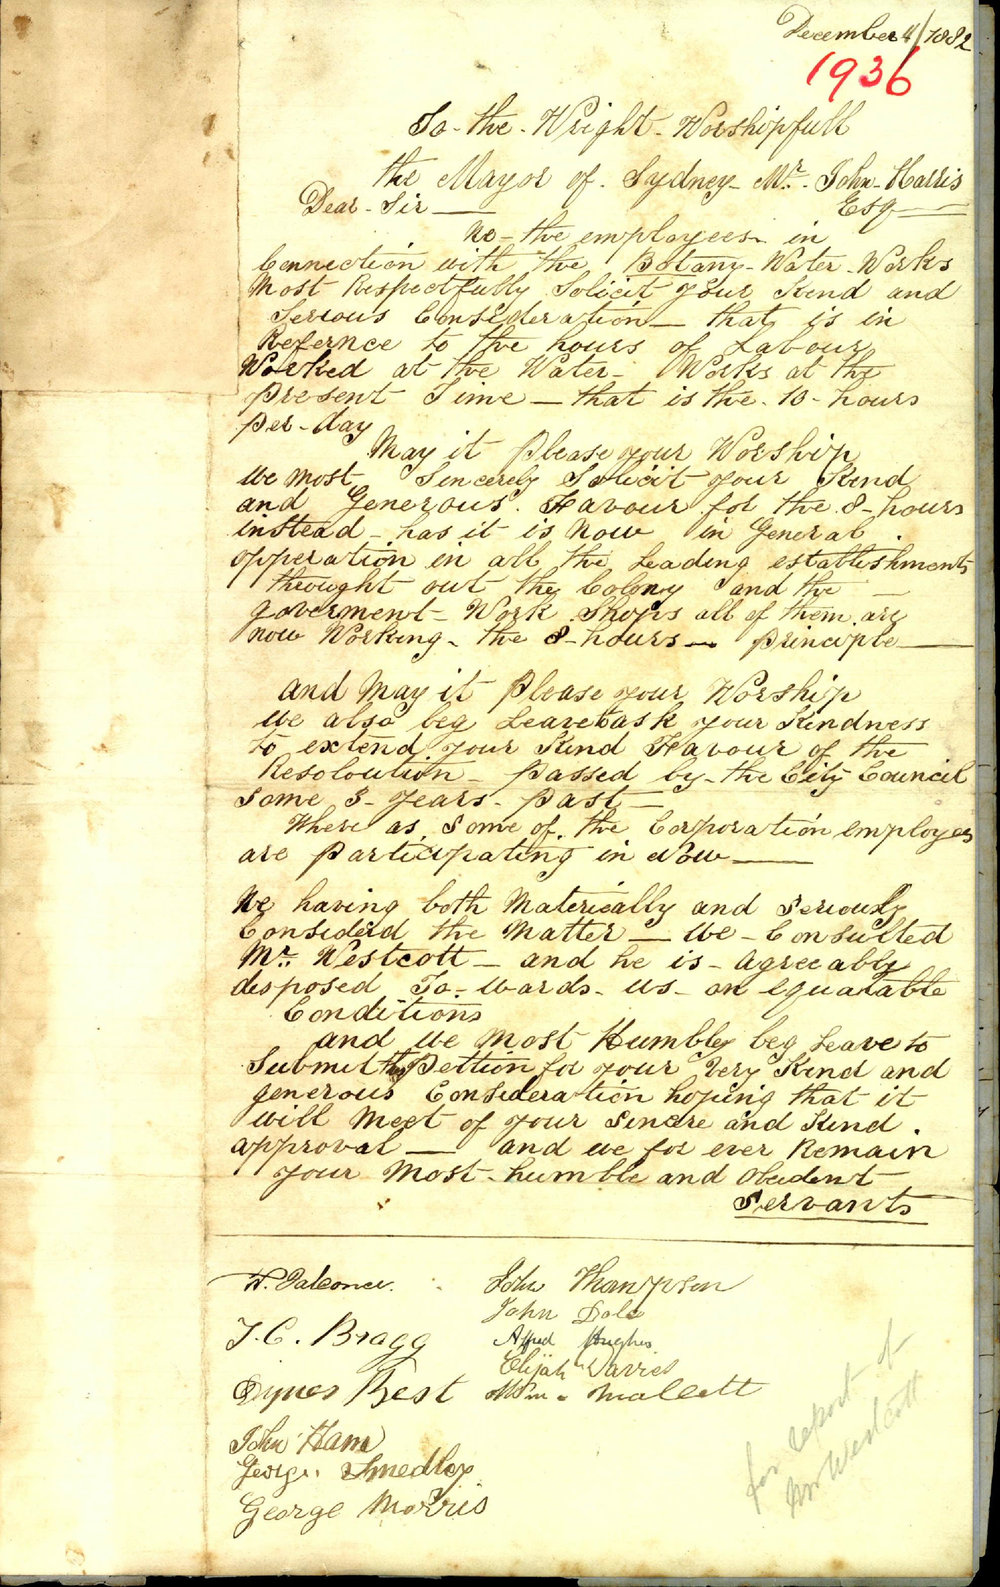 December 4/1882
1936
To - the - Wright - Worshipfull
the Mayor of - Sydney - Mr. John - Harris
Dear - Sir — Esq —
We - the employees in
Connection with the Botany - Water - Works
Most Respectfully Solicit your Kind and
Serious Consideration — that is in
Refernce to the hours of Labour
Worked at the Water - Works at the
present Time — that is the - 10 - hours
per - day
May it Please your Worship
We most Sincerely Solicit your Kind
and Generous Favour for the 8 - hours
instead - has it is Now in General
opperation in all the Leading establishments
throught out the Colony and the —
goverment - Work Shops all of them are
now Working - the 8 - hours — principle —
and May it Please your Worship
We also beg Leave to ask your Kindness
to extend your Kind Favour of the
Resoloution - passed by - the City Council
Some 3 - years - past —
Where as Some of the Corporation employees
are Participating in Now —
We having both Materieally and Seriously
Considerd the Matter — We - Consulted
Mr. Westcott - and he is - Agreeably
disposed To - wards - us - on equatable
Conditions
and We most Humbley beg Leave to
Submit this Pettion for your Very Kind and
generous Consideration hoping that it
will Meet of your Sincere and Kind
approval — and we for ever Remain
your Most - humble and Obedent
Servants
W. Falconer.
John Thompson
John Dole
T. C. Bragg
Alfred Hughes
Elijah
Best
Wm - Mallett
John Ham
George Smedley
George Morris
for report of
Mr Westcott